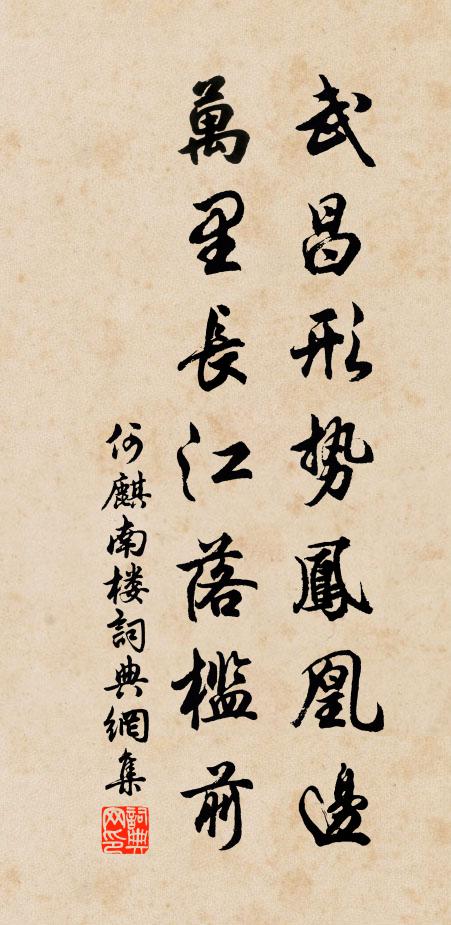 武昌形勢鳳凰邊
萬里長江落檻前
何麒南楼詞典網集
詞典
网印